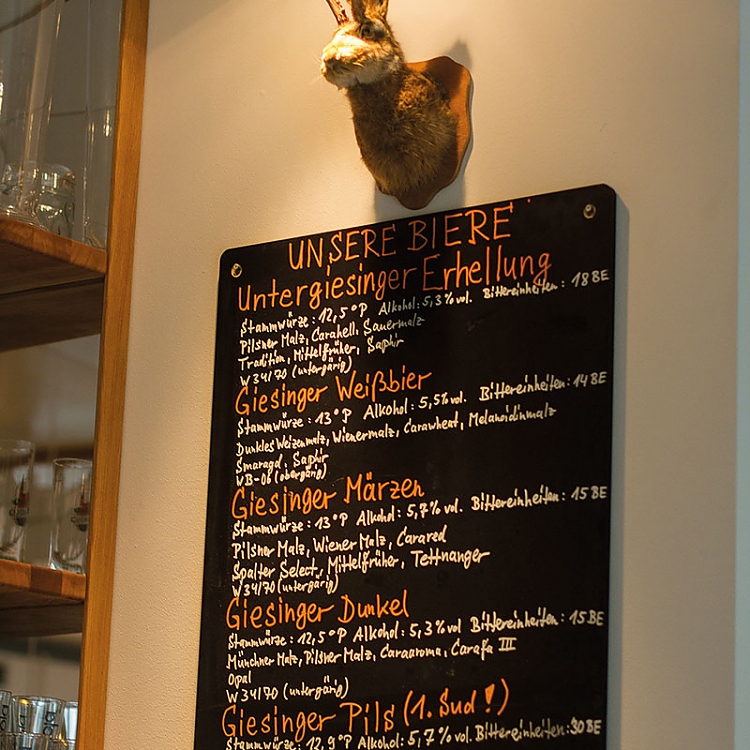 UNSERE BIERE
Untergiesinger Erhellung
Stammwürze: 12,5°P Alkohol: 5,3%vol. Bittereinheiten: 18BE
Pilsner Malz, Carahell, Sauermalz
Tradition, Mittelfrüher, Saphir
W34/70 (untergärig)
Giesinger Weißbier
Stammwürze: 13°P Alkohol: 5,5%vol. Bittereinheiten: 14BE
Dunkles Weizenmalz, Wienermalz, Carawheat, Melanoidinmalz
Smaragd, Saphir
WB-06 (obergärig)
Giesinger Märzen
Stammwürze: 13°P Alkohol: 5,7%vol. Bittereinheiten: 15BE
Pilsner Malz, Wiener Malz, Carared
Spalter Select, Mittelfrüher, Tettnanger
W34/70 (untergärig)
Giesinger Dunkel
Stammwürze: 12,5°P Alkohol: 5,3%vol Bittereinheiten: 15BE
Münchner Malz, Pilsner Malz, Caraaroma, Carafa III
Opal
W34/70 (untergärig)
Giesinger Pils (1. Sud!)
Stammwürze: 12,9°P Alkohol: 5,7%vol. Bittereinheiten: 30BE